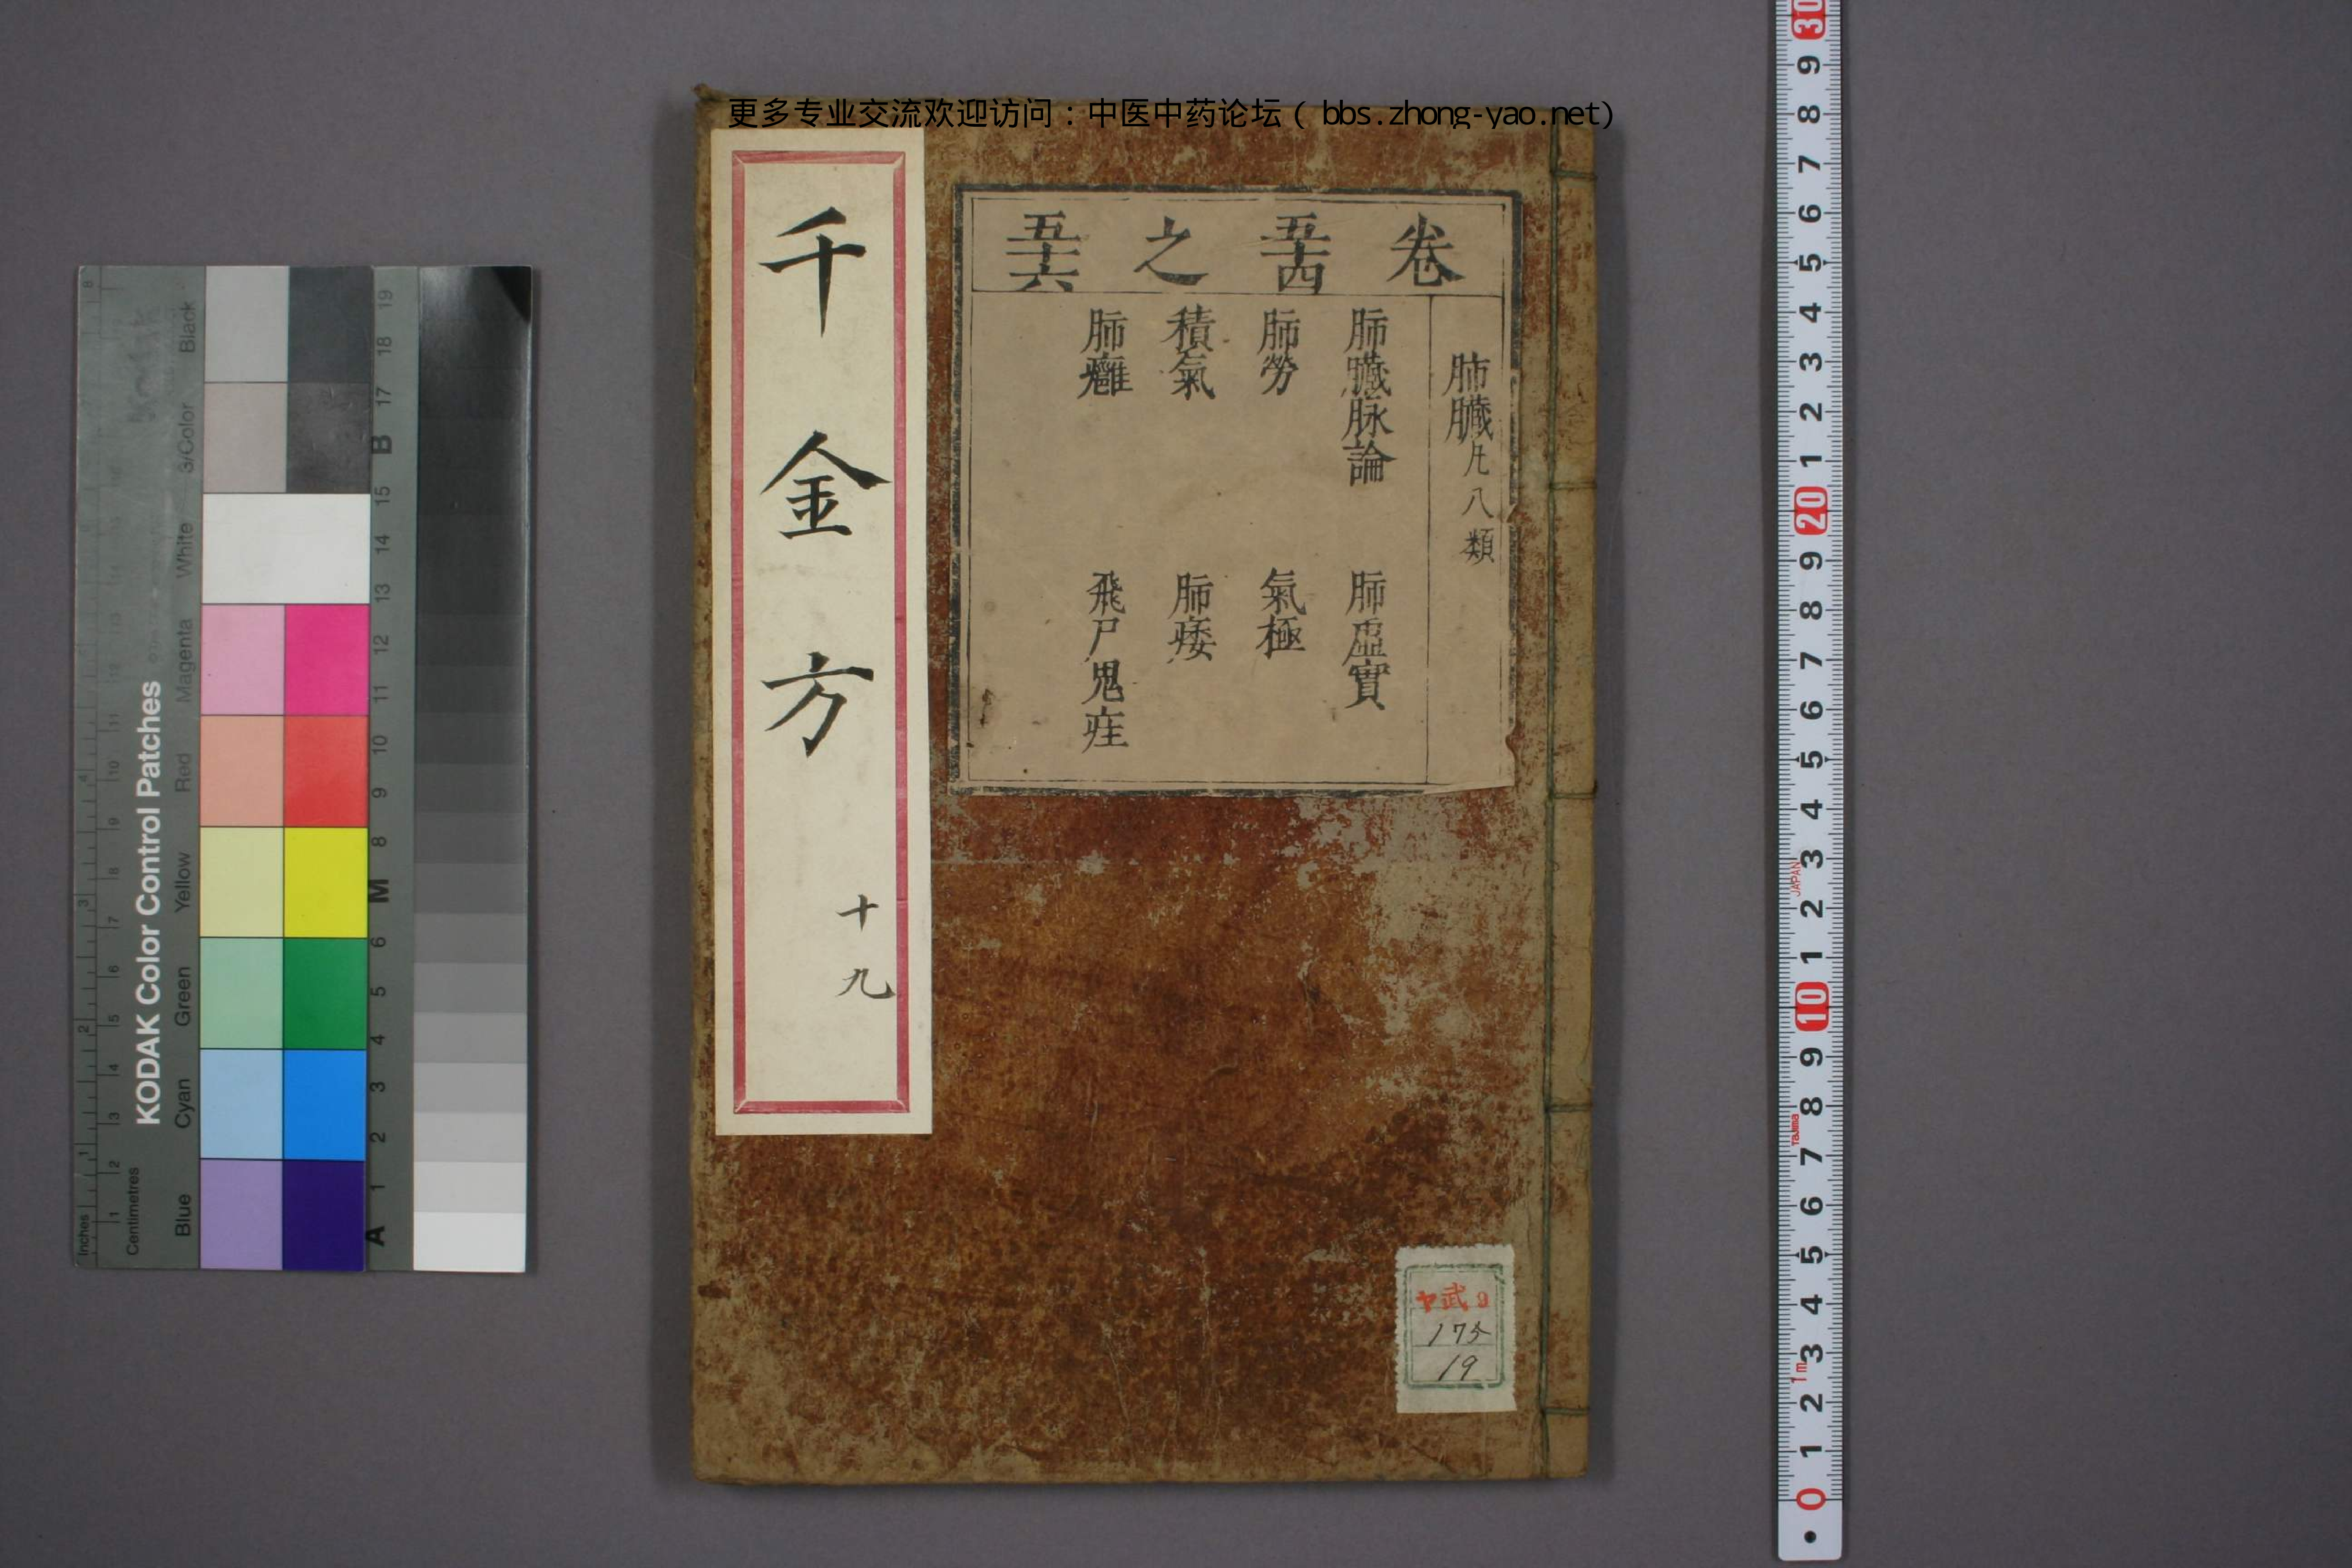 更多专业交流欢迎访问：中医中药论坛（bbs.zhong-yao.net）
千金方
十九
卷五十四之五十六
肺臟凡八類
肺臟脉論
肺虛實
肺勞
氣極
積氣
肺痿
肺癰
飛尸鬼疰
ヤ武9
175
19
KODAK Color Control Patches
Blue Cyan Green Yellow Red Magenta White 3/Color Black
Inches
Centimetres
8
1 2 3 4 5 6 7 8 9 10 11
A 1 2 3 4 5 6 M 8 9 10 11 12 13 14 15 B 17 18 19
30
9
8
7
6
5
4
3
2
1
20
9
8
7
6
5
4
3
JAPAN
2
1
10
9
8
Tajima
7
6
5
4
3
1m
2
1
0